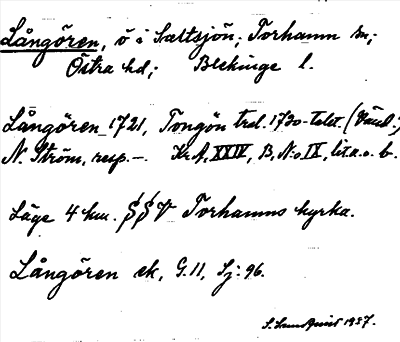 Långören, ö i Saltsjön; Torhamn sn;
Östra hd; Blekinge l.
Långören 1721, Tongön trol. 1730-talet. (
N. Ström, resp. -. Kr.A, XXIV, B, N:o IX, lit.a.o. b.
Läge 4 km. SSV Torhamns kyrka.
Långören ek, G.11, Sj: 96.
S. Sundquist 1937.